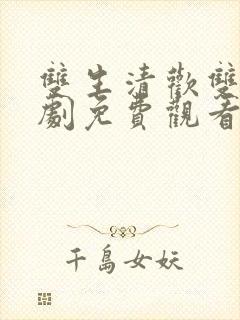 雙生清歡雙
劇免費觀看
千島女妖